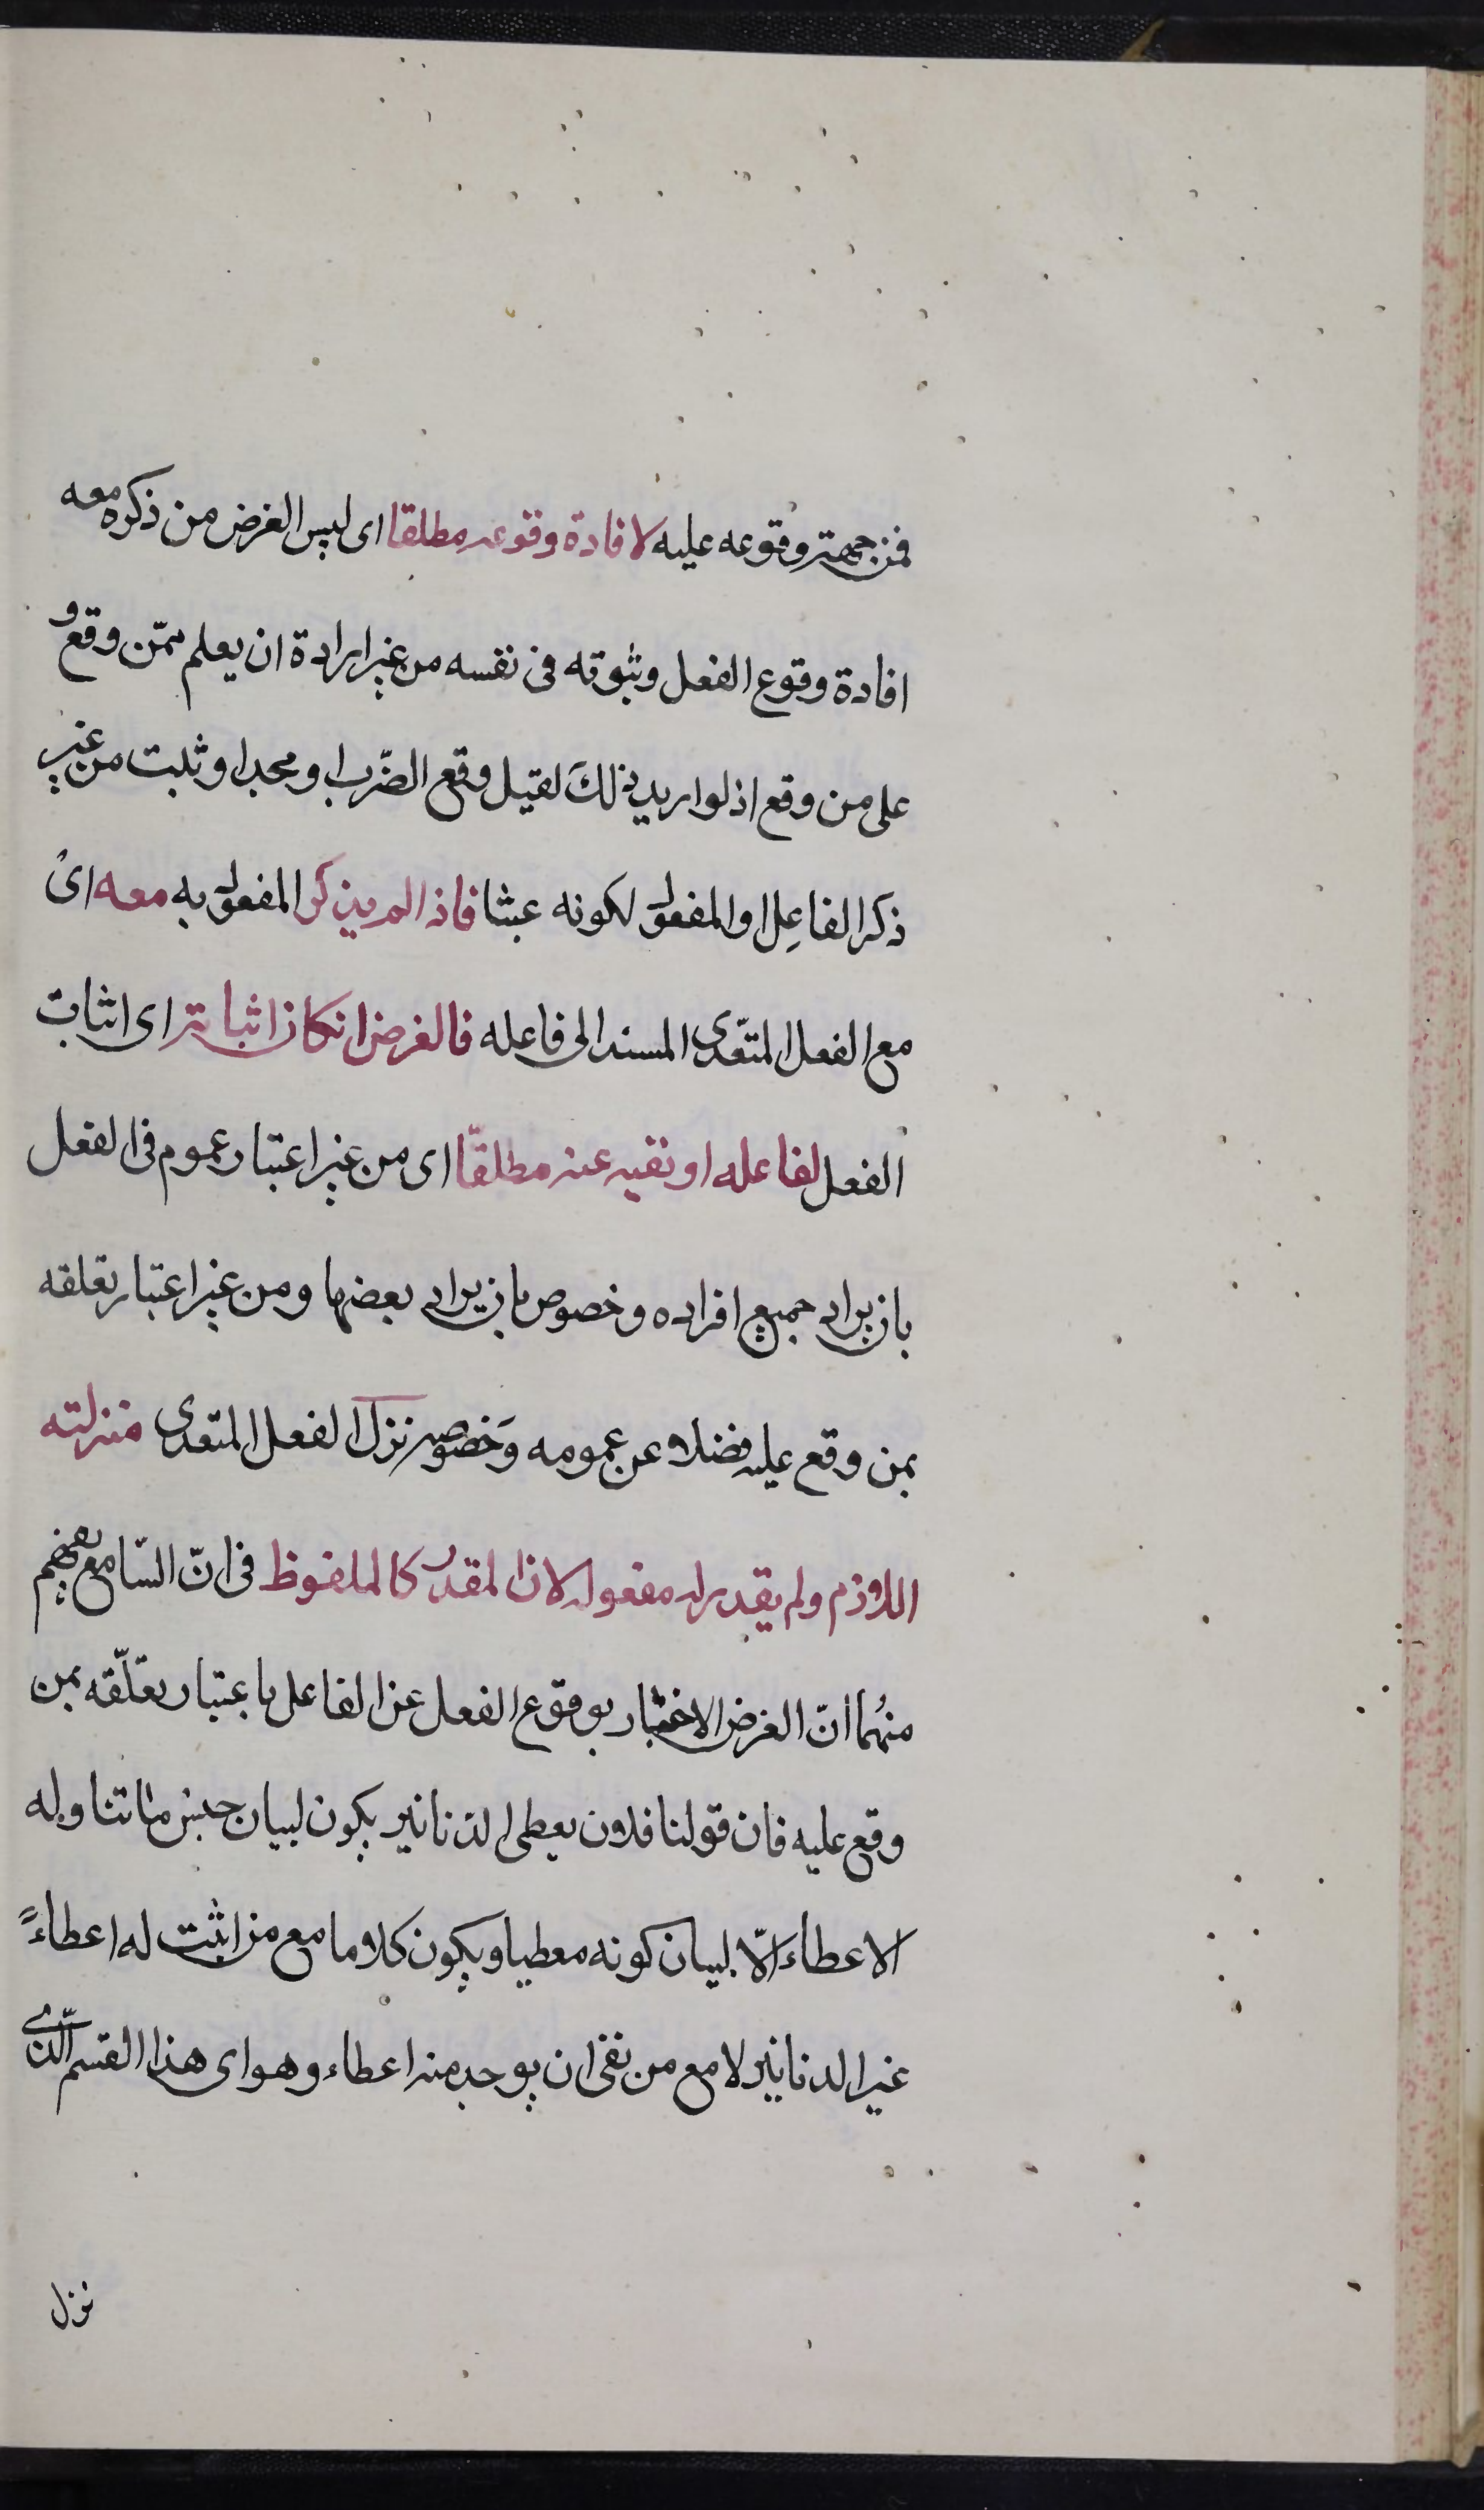 فمن جهة وقوعه عليه لا فادة وقوعه مطلقا اى ليس الغرض من ذكره معه
افادة وقوع الفعل وثبوته فى نفسه من غير ارادة ان يعلم ممّن وقع و
على من وقع اذ لو اريد ذلكَ لقيل وقع الضّرب او مجدا او ثبت من غير
ذكر الفاعِل او المفعول لكونه عبثا فاذا لم يذكر المفعول به معه اى
مع الفعل المتعّدى المسند الى فاعله فالغرض ان كان اثباته اى اثبات
الفعل لفاعله او نفيه عنه مطلقّا اى من غير اعتبار عموم فى الفعل
بان يراد جميع افراده و خصوص بان يراد بعضها ومن غير اعتبار تعلقه
بمن وقع عليه فضلا عن عمومه وَخصوصه نزل الفعل المتعدى منزلته
اللازم ولم يقدر له مفعول لان المقدر كالملفوظ فى انّ السّامع يفهم
منهُما انّ الغرض الاخبار بوقوع الفعل عن الفاعل باعتبار تعلّقه بمن
وقع عليه فان قولنا فلان يعطى الدنانير يكون لبيان جنس ما تناوله
الاعطاء الّا لبيان كونه معطيا ويكون كلاما مع من اثبت له اعطاءً
غير الدنانير لا مع من نفى ان يوجد منه اعطاء وهو اى هذا القسم الّذى
نزل